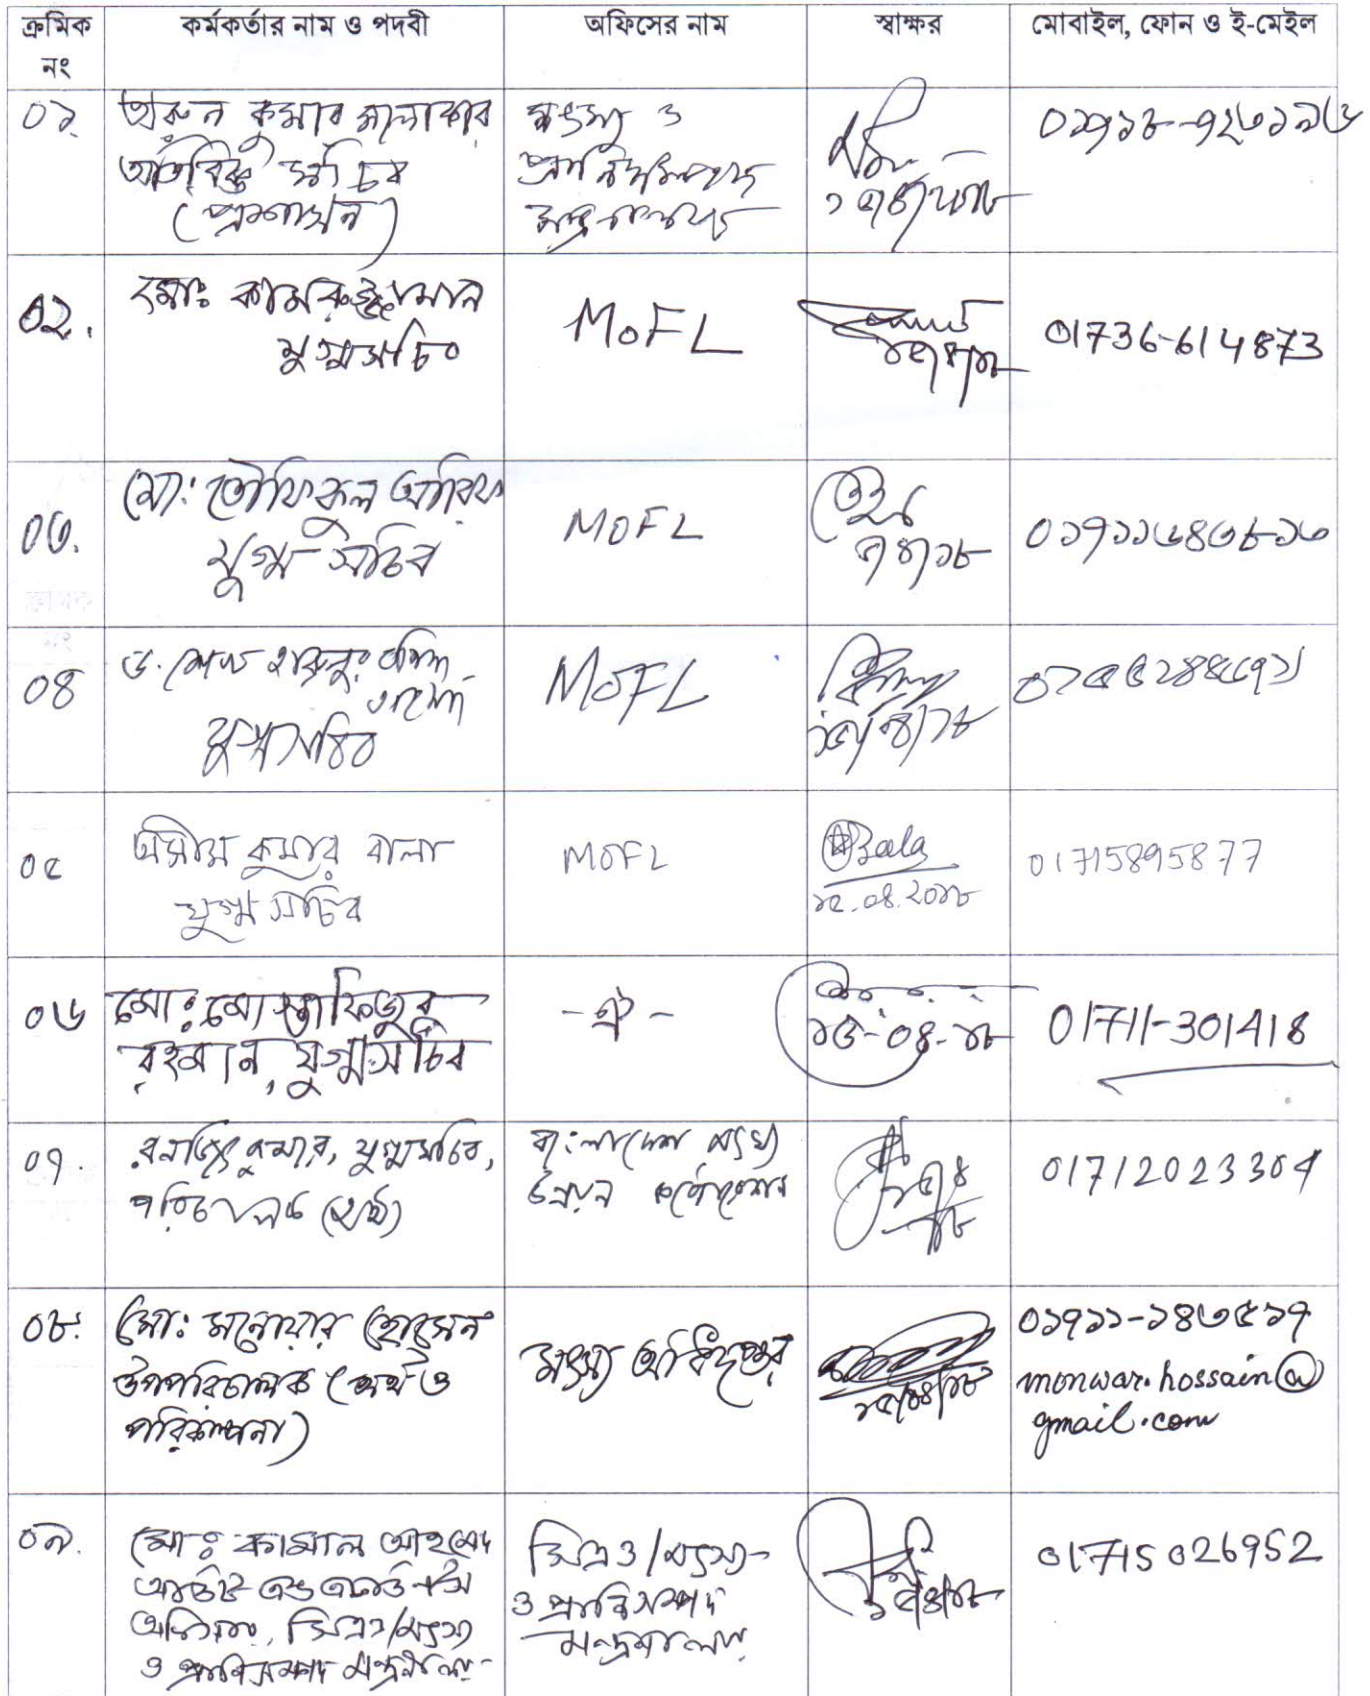 ক্রমিক নং
কর্মকর্তার নাম ও পদবী
অফিসের নাম
স্বাক্ষর
মোবাইল, ফোন ও ই-মেইল
০১
অরুন কুমার মালাকার
অতিরিক্ত সচিব
(প্রশাসন)
মৎস্য ও
প্রানিসম্পদ
মন্ত্রণালয়
০২.
মোঃ কামরুজ্জামান
যুগ্মসচিব
MoFL
01736-614873
০৩.
মো: তৌফিকুল আরিফ
যুগ্ম সচিব
MOFL
৭/৪/১৮
০১৭১১৬৪৩৮১৩
০৪
ড. শেখ হারুনুর রশিদ
যুগ্মসচিব
MOFL
০৫
অসীম কুমার বালা
যুগ্মসচিব
MOFL
Bala
১৫.০৪.২০১৮
01715895877
০৬
মোঃ মোস্তাফিজুর
রহমান, যুগ্মসচিব
-ঐ-
০৪-১৮
01711-301418
০৭.
রনজিৎ কুমার, যুগ্মসচিব,
পরিচালক (অর্থ)
বাংলাদেশ মৎস্য
উন্নয়ন কর্পোরেশন
01712023304
০৮.
মো: মনোয়ার হোসেন
উপপরিচালক (অর্থ ও
পরিকল্পনা)
মৎস্য অধিদপ্তর
১৫/০৪/১৮
০১৭১১-১৪৩৫১৭
monwar.hossain@
gmail.com
০৯.
মোঃ কামাল আহমেদ
অডিট এন্ড একাউন্টস
অফিসার, সিএও/মৎস্য
ও প্রাণিসম্পদ মন্ত্রণালয়
সিএও/মৎস্য
ও প্রাণিসম্পদ
মন্ত্রণালয়
১৫/৪/১৮
01715026952